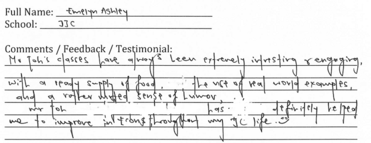 Full Name: Emelyn Ashley
School: JJC
Comments / Feedback / Testimonial:
Mr Toh's classes have always been extremely interesting & engaging,
with a ready supply of food, the use of real world examples,
and a rather sense of humor,
mr Toh has definitely helped
me to improve throughout my JC life. :)